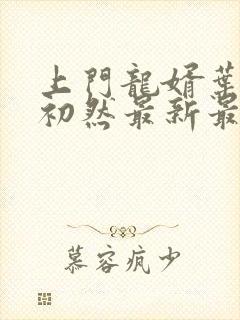 上門龍婿葉
初然最新最
慕容疯少